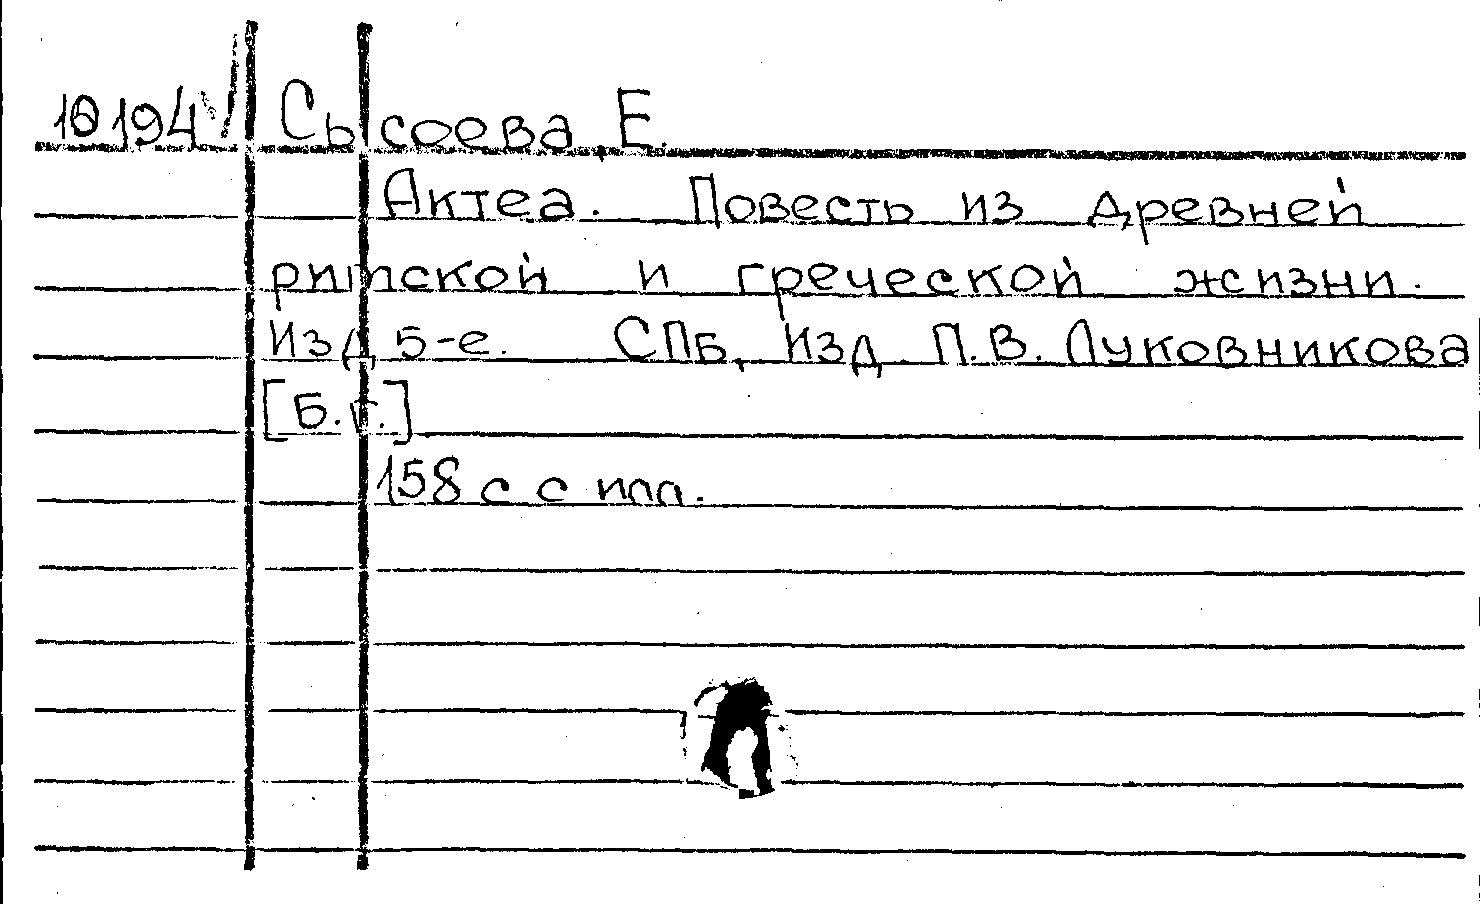 10194 Сысоева, Е.
Актеа. Повесть из древней
римской и греческой жизни.
Изд. 5-е. СПБ, Изд. П.В. Луковникова
[Б.г.]
158 с с илл.